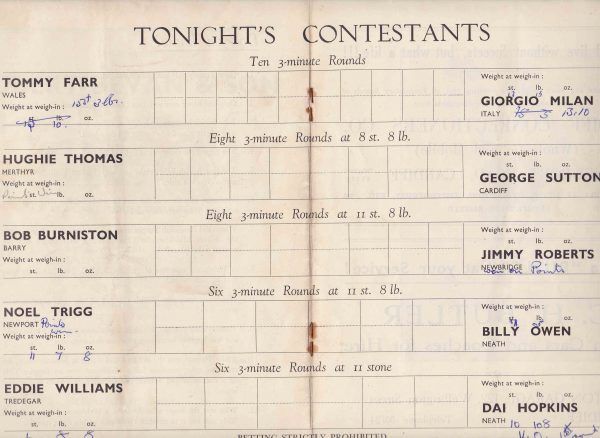 TONIGHT'S CONTESTANTS
Ten 3-minute Rounds
TOMMY FARR
WALES
Weight at weigh-in :
15st 3lbs.
st. lb. oz.
Weight at weigh-in :
st. lb. oz.
GIORGIO MILAN
ITALY
13.10
Eight 3-minute Rounds at 8 st. 8 lb.
HUGHIE THOMAS
MERTHYR
Weight at weigh-in :
Points win
st. lb. oz.
Weight at weigh-in :
st. lb. oz.
GEORGE SUTTON
CARDIFF
Eight 3-minute Rounds at 11 st. 8 lb.
BOB BURNISTON
BARRY
Weight at weigh-in :
st. lb. oz.
Weight at weigh-in :
st. lb. oz.
JIMMY ROBERTS
NEWBRIDGE
won on Points
Six 3-minute Rounds at 11 st. 8 lb.
NOEL TRIGG
NEWPORT Points win
Weight at weigh-in :
st. lb. oz.
11 7 8
Weight at weigh-in :
st. lb. oz.
BILLY OWEN
NEATH
Six 3-minute Rounds at 11 stone
EDDIE WILLIAMS
TREDEGAR
Weight at weigh-in :
st. lb. oz.
Weight at weigh-in :
st. lb. oz.
DAI HOPKINS
NEATH 10 10 8
BETTING STRICTLY PROHIBITED